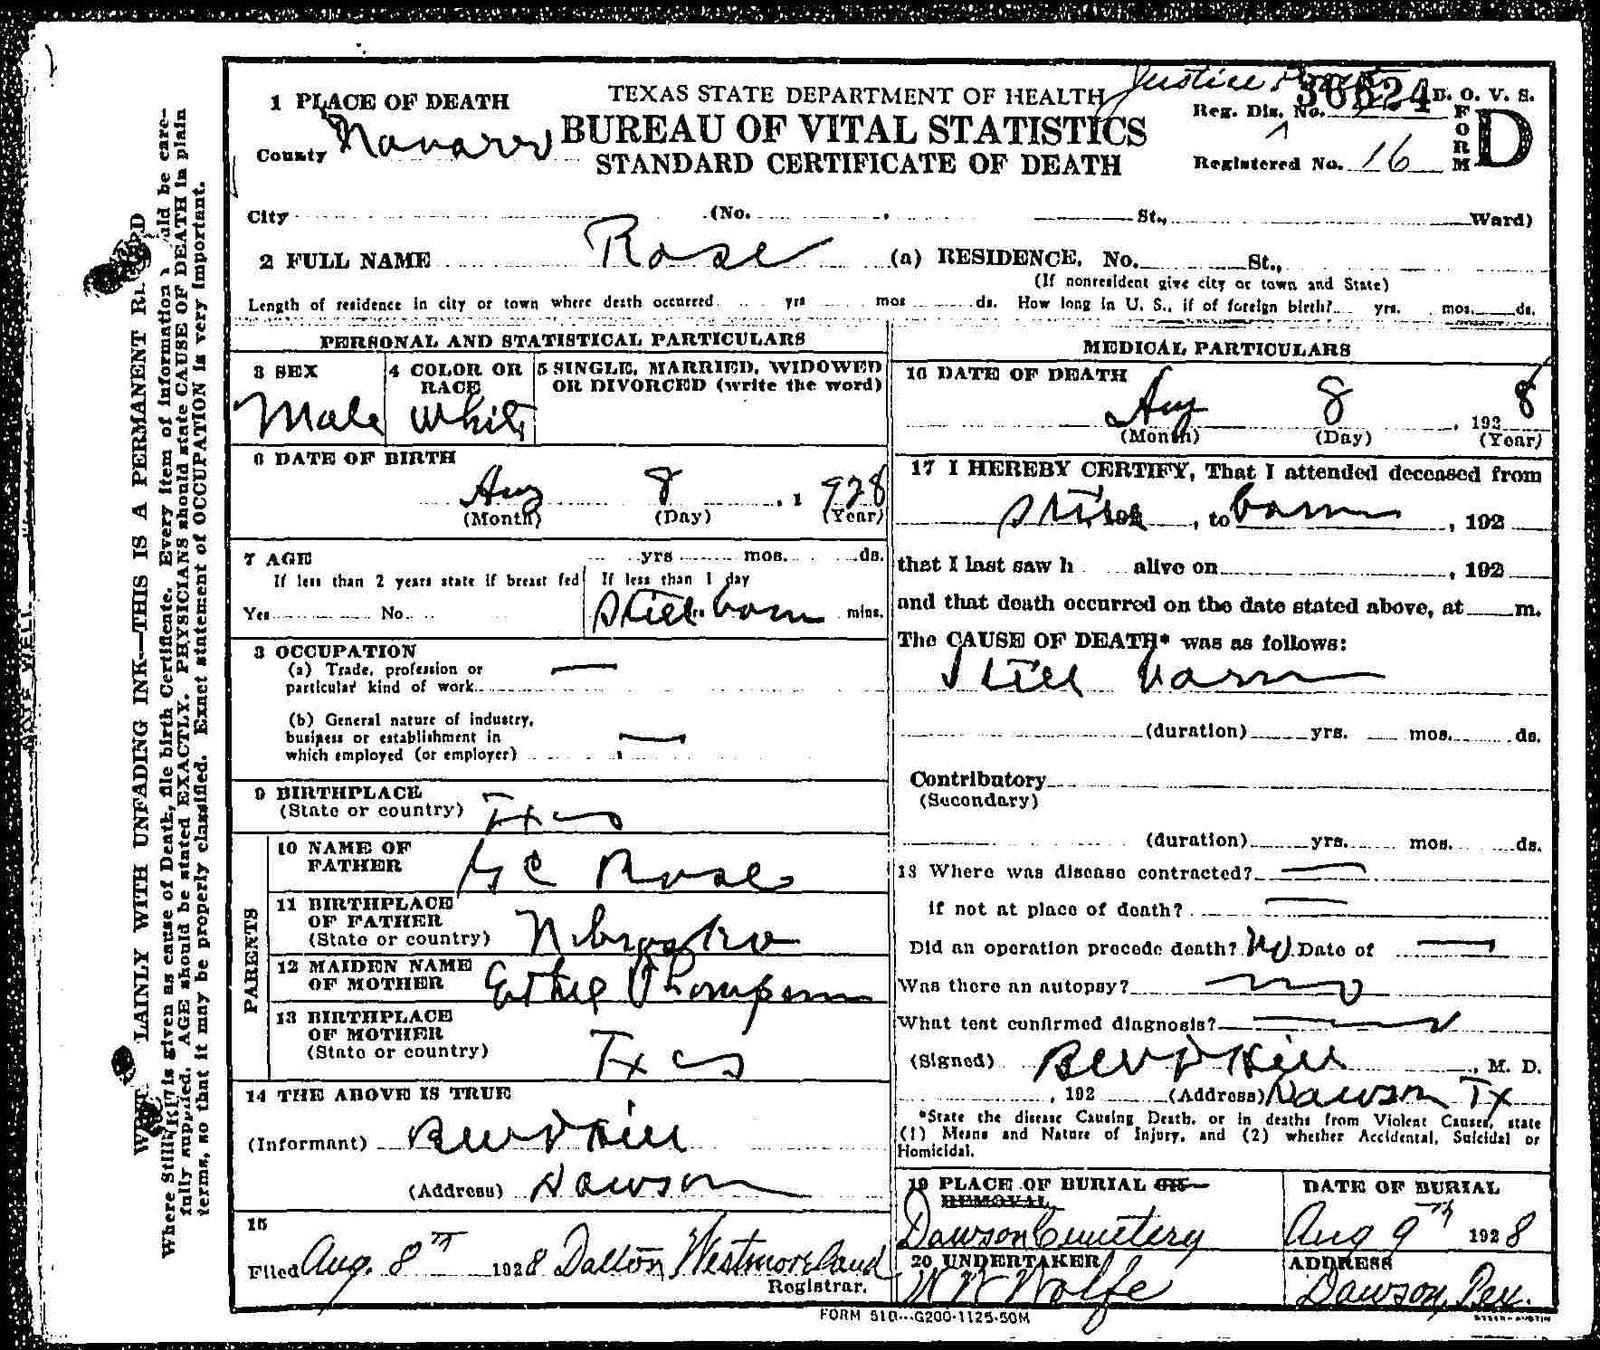 Justice
36624 B. O. V. S.
1 PLACE OF DEATH
TEXAS STATE DEPARTMENT OF HEALTH
Reg. Dis. No.
FORM D
County Navarro
BUREAU OF VITAL STATISTICS
STANDARD CERTIFICATE OF DEATH
Registered No. 16
City (No. , St., Ward)
2 FULL NAME Rose (a) RESIDENCE. No. St.,
(If nonresident give city or town and State)
Length of residence in city or town where death occurred yrs mos ds. How long in U. S., if of foreign birth? yrs. mos. ds.
PERSONAL AND STATISTICAL PARTICULARS
3 SEX
Male
4 COLOR OR RACE
White
5 SINGLE, MARRIED, WIDOWED
OR DIVORCED (write the word)
6 DATE OF BIRTH
Aug 8, 1 928
(Month) (Day) (Year)
7 AGE yrs mos. ds.
If less than 2 years state if breast fed
Yes No
If less than 1 day
Still born mins.
8 OCCUPATION
(a) Trade, profession or
particular kind of work
(b) General nature of industry,
business or establishment in
which employed (or employer)
9 BIRTHPLACE
(State or country) Txas
PARENTS
10 NAME OF
FATHER Rose
11 BIRTHPLACE
OF FATHER
(State or country)
12 MAIDEN NAME
OF MOTHER Thompson
13 BIRTHPLACE
OF MOTHER
(State or country) Txas
14 THE ABOVE IS TRUE
(Informant) Hill
(Address) Dawson
15
Filed Aug. 8TH 1928 Dalton Westmoreland
Registrar.
MEDICAL PARTICULARS
16 DATE OF DEATH
Aug 8, 192 8
(Month) (Day) (Year)
17 I HEREBY CERTIFY, That I attended deceased from
Still 192, to born, 192
that I last saw h alive on, 192
and that death occurred on the date stated above, at m.
The CAUSE OF DEATH* was as follows:
Still born
(duration) yrs. mos. ds.
Contributory
(Secondary)
(duration) yrs. mos. ds.
18 Where was disease contracted?
if not at place of death?
Did an operation precede death? No Date of
Was there an autopsy? no
What test confirmed diagnosis?
(Signed) Hill, M. D.
, 192 (Address) Dawson Tx
*State the disease Causing Death, or in deaths from Violent Causes, state
(1) Means and Nature of Injury, and (2) whether Accidental, Suicidal or
Homicidal.
19 PLACE OF BURIAL OR
REMOVAL
Dawson Cemetery
DATE OF BURIAL
Aug 9TH 1928
20 UNDERTAKER
W W Wolfe
ADDRESS
Dawson,
FORM 510---G200-1125-50M
LAINLY WITH UNFADING INK—THIS IS A PERMANENT
is given as cause of Death, file birth Certificate. Every item of information should be care-
fully supplied. AGE should be stated EXACTLY. PHYSICIANS should state CAUSE OF DEATH in plain
terms, so that it may be properly classified. Exact statement of OCCUPATION is very important.